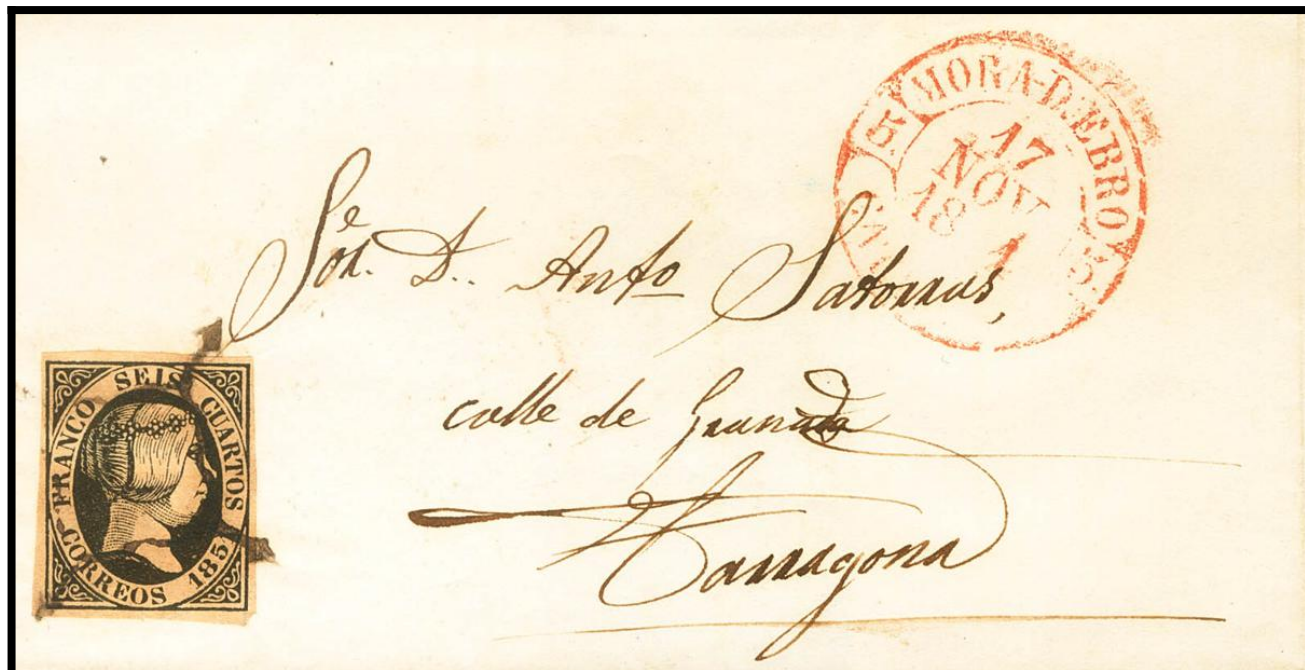 MORA-D'EBRO
17
NOV
18 1
Sor. D. Anto Satorras,
calle de Granada
Tarragona
FRANCO SEIS CUARTOS
CORREOS 1851